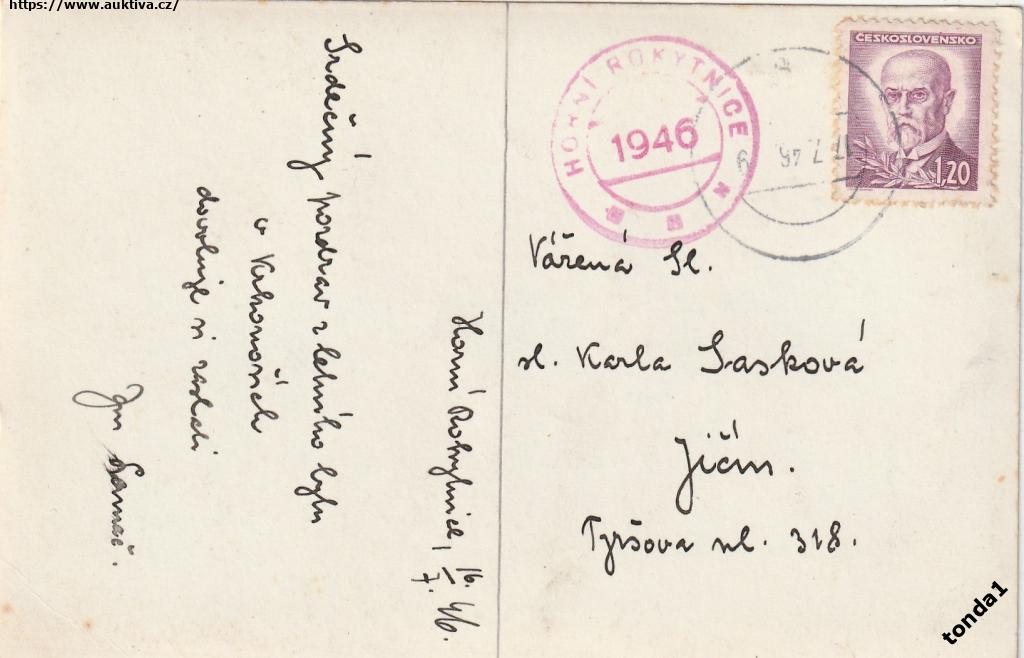 https://www.auktiva.cz/
Horní Rokytnice, 16./7. 46.
Srdečný pozdrav z letního bytu
v Krkonoších
dovoluje si zaslati
Jan
HORNÍ ROKYTNICE
1946
17 7 46
ČESKOSLOVENSKO
1,20
Vářená Sl.
sl. Karla Sasková
Jičín.
Tyršova ul. 318.
tonda1